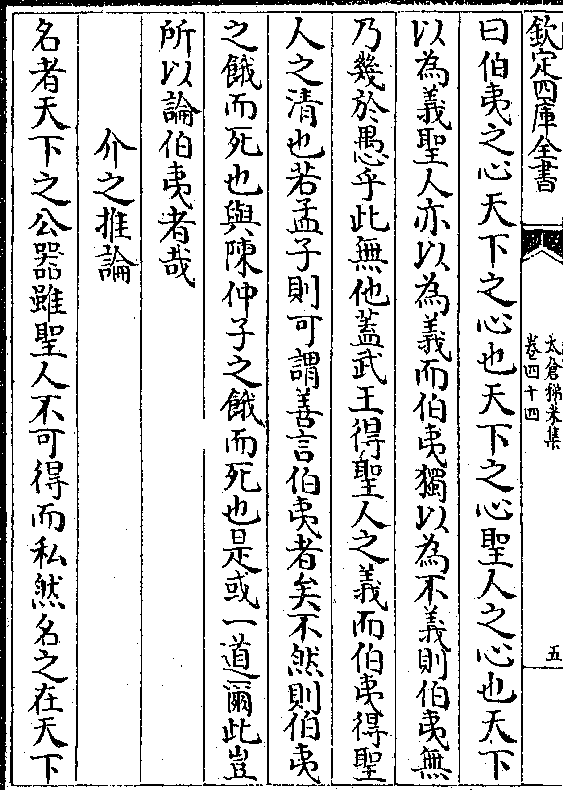 欽定四庫全書
太倉稊米集
卷四十四
五
曰伯夷之心天下之心也天下之心聖人之心也天下
以為義聖人亦以為義而伯夷獨以為不義則伯夷無
乃幾於愚乎此無他蓋武王得聖人之義而伯夷得聖
人之清也若孟子則可謂善言伯夷者矣不然則伯夷
之餓而死也與陳仲子之餓而死也是或一道爾此豈
所以論伯夷者哉
介之推論
名者天下之公器雖聖人不可得而私然名之在天下